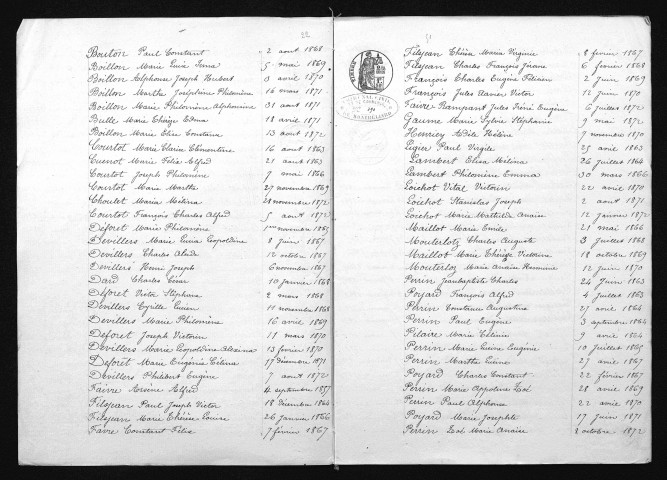 22
Bouton Paul Constant 2 aout 1868
Boillon Marie Luix Irma 5 mai 1869
Boillon Alphonse Joseph Hubert 3 avril 1870
Boillon Marthe Joséphine Philomène 16 mars 1871
Boillon Marie Philomène Alphonsine 31 aout 1871
Bulle Marie Thérèze Edma 18 avril 1871
Boillon Marie Elise Constance 13 aout 1872
Courtot Marie Clarisse Clémentine 16 aout 1863
Cuenot Marie Félix Alfred 21 aout 1863
Courtot Joseph Philomène 7 mai 1866
Courtot Marie Marthe 27 novembre 1869
Choulet Maria Mélina 28 novembre 1872
Courtot François Charles Alfred 5 aout 1872
Déforet Marie Philomène 1er novembre 1867
Devillers Marie Lucia Léopoldine 8 juin 1867
Devillers Charles Alcide 12 octobre 1867
Devillers Henri Joseph 6 novembre 1867
Dard Charles César 10 janvier 1868
Déforet Victor Stéphane 2 mars 1868
Devillers Cyrille Lucien 11 novembre 1868
Devillers Marie Philomène 16 avril 1869
Déforet Joseph Victorin 11 mars 1870
Devillers Marie Léopoldine Alexina 13 février 1870
Déforet Marie Eugénie Célina 17 décembre 1871
Devillers Philibert Eugène 7 aout 1872
Faivre Arsène Alfred 4 septembre 1857
Filsjean Paul Joseph Victor 18 décembre 1864
Filsjean Marie Thérèse Louise 26 janvier 1866
Faivre Constant Félix 7 février 1867
Filsjean Thérésa Maria Virginie 8 février 1867
Filsjean Charles François Jérome 6 février 1868
François Charles Eugène Félicien 2 juin 1869
François Jules Xavier Victor 12 juin 1870
Faivre Rampant Jules Iréné Eugène 6 juillet 1872
Gaume Marie Sylvie Stéphanie 9 mai 1872
Henriey Adèle Hélène 7 novembre 1870
Ligier Paul Virgile 25 avril 1863
Lambert Elisa Mélina 26 juillet 1864
Lambert Philomène Emma 30 mars 1866
Loichot Vital Victorin 22 avril 1870
Loichot Stanislas Joseph 2 aout 1871
Loichot Marie Mathilde Anaïse 12 janvier 1872
Maillot Marie Emile 21 mai 1866
Mouterlotz Charles Auguste 3 juillet 1868
Maillot Marie Thérèse Victorine 18 octobre 1869
Mouterloz Marie Anaïse 12 juin 1870
Perrin Jeanbaptiste Charles 24 juin 1863
Poyard François Alfred 4 juillet 1863
Perrin Constance Augustine 27 avril 1864
Perrin Paul Eugène 3 septembre 1864
Pilaire Marie 9 avril 1864
Perrin Marie Lucine Eugénie 10 juillet 1865
Perrin Marthe 27 avril 1867
Poyard Charles Constant 22 février 1867
Perrin Marie Appoline Zoé 28 avril 1869
Perrin Paul Alphonse 22 avril 1870
Poyard Marie Josephte 17 juin 1871
Perrin Zoé Marie Anaïse 2 octobre 1872